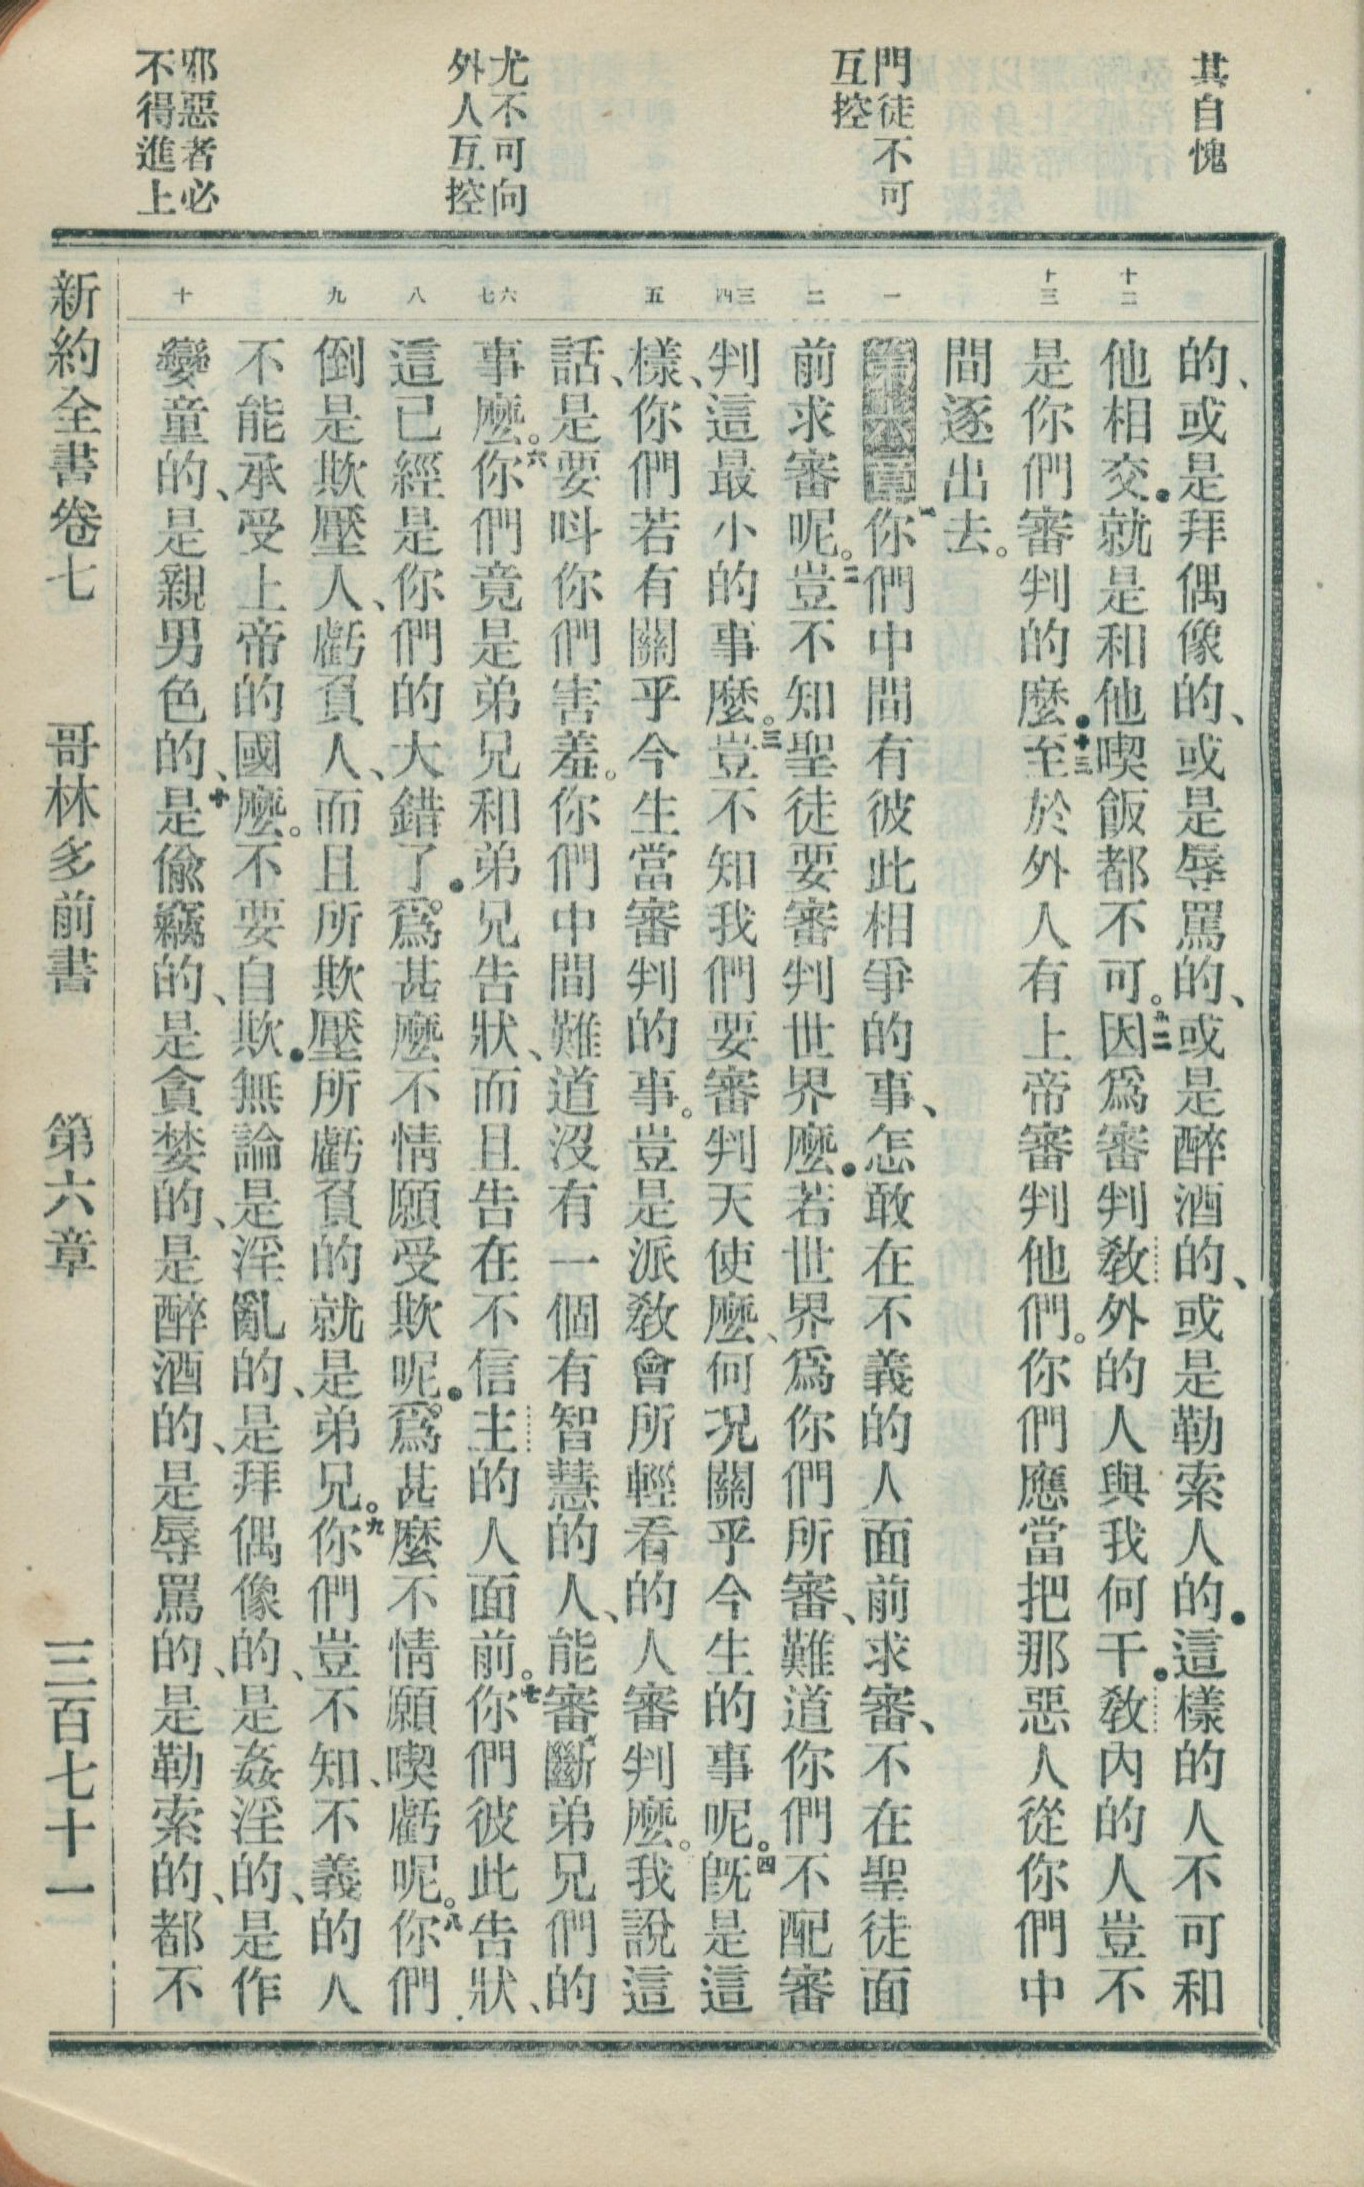 其自愧
門徒不可
互控
尤不可向
外人互控
邪惡者必
不得進上
十二
十三
一
二
三四
五
六七
八
九
十
的、或是拜偶像的、或是辱罵的、或是醉酒的、或是勒索人的．這樣的人不可和
他相交．就是和他喫飯都不可。十二因爲審判教外的人與我何干．教內的人豈不
是你們審判的麼．十三至於外人有上帝審判他們。你們應當把那惡人從你們中
間逐出去。
第六章一你們中間有彼此相爭的事、怎敢在不義的人面前求審、不在聖徒面
前求審呢。二豈不知聖徒要審判世界麼．若世界爲你們所審、難道你們不配審
判這最小的事麼。三豈不知我們要審判天使麼、何况關乎今生的事呢。四旣是這
樣、你們若有關乎今生當審判的事。豈是派教會所輕看的人審判麼。我說這
話、是要呌你們害羞。你們中間難道沒有一個有智慧的人、能審斷弟兄們的
事麼。六你們竟是弟兄和弟兄告狀、而且告在不信主的人面前。七你們彼此告狀、
這已經是你們的大錯了．爲甚麼不情願受欺呢．爲甚麼不情願喫虧呢。八你們
倒是欺壓人、虧負人、而且所欺壓所虧負的就是弟兄。九你們豈不知、不義的人
不能承受上帝的國麼。不要自欺．無論是淫亂的、是拜偶像的、是姦淫的、是作
孌童的、是親男色的、十是偸竊的、是貪婪的、是醉酒的、是辱罵的、是勒索的、都不
新約全書卷七 哥林多前書 第六章 三百七十一